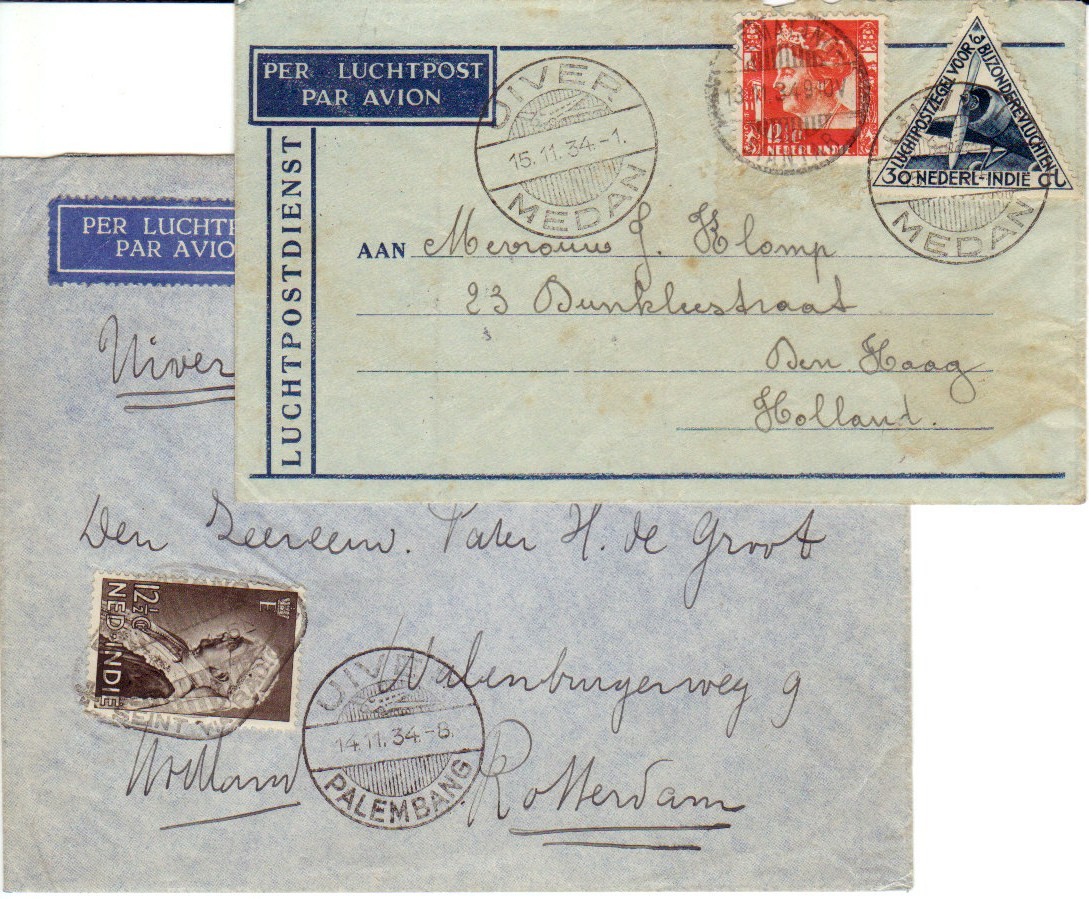 PER LUCHTPOST
PAR AVION
LUCHTPOSTDIENST
UIVER
15.11.34.-1.
MEDAN
12½ ct
NEDERL. INDIE
LUCHTPOSTZEGEL VOOR BIJZONDERE VLUCHTEN
30 NEDERL-INDIË ct
MEDAN
AAN Mevrouw J. Klomp
23 Dunklerstraat
Den Haag
Holland.
PER LUCHTP
PAR AVIO
Uiver
Den Zeereerw. Pater H. de Groot
12½ ct
NED. INDIE
UIVER
14.11.34-8.
PALEMBANG
Walenburgerweg 9
Rotterdam
Holland